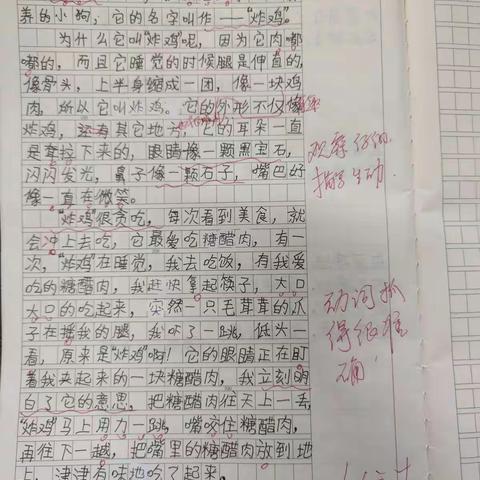 养的小狗，它的名字叫作——“炸鸡”。
为什么它叫“炸鸡”呢，因为它肉嘟
嘟的，而且它睡觉的时候腿是伸直的，
像骨头，上半身缩成一团，像一块鸡
肉，所以它叫炸鸡。它的外形不仅像
炸鸡，还有其它地方，它的耳朵一直
是耷拉下来的，眼睛像一颗黑宝石，
闪闪发光，鼻子像一颗石子，嘴巴好
像一直在微笑。
“炸鸡”很贪吃，每次看到美食，就
会冲上去吃，它最爱吃糖醋肉，有一
次，“炸鸡”在睡觉，我去吃饭，有我爱
吃的糖醋肉，我赶快拿起筷子，大口
大口的吃起来，突然一只毛茸茸的爪
子在搔我的腿，我吓了一跳，低头一
看，原来是“炸鸡”啊！它的眼睛正在盯
着我夹起来的一块糖醋肉，我立刻明
白了它的意思，把糖醋肉往天上一丢，
“炸鸡”马上用力一跳，嘴咬住糖醋肉，
再往下一越，把嘴里的糖醋肉放到地
上，津津有味地吃了起来。
观察仔细，
描写生动。
动词抓
得很准
确